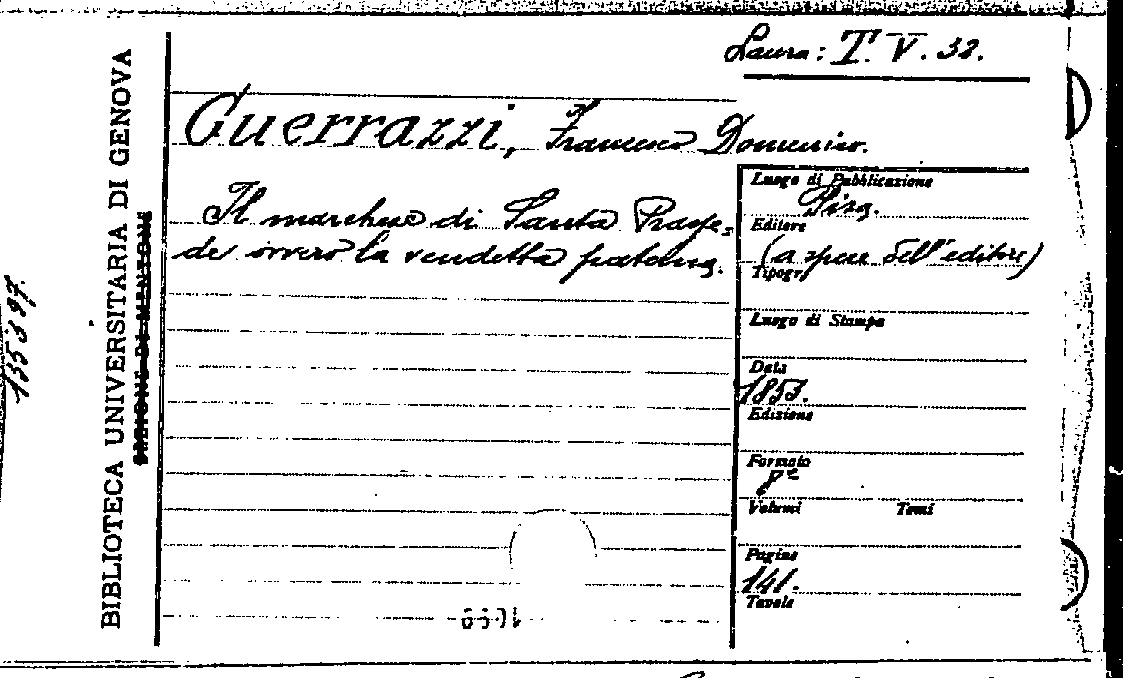 Laura: T. V. 32.
Guerrazzi, Francesco Domenico.
Il marchese di Santa Prasse-
de ovvero la vendetta paterna.
Luogo di Pubblicazione
Pisa.
Editore
(a spese dell'editore)
Tipogr.
Luogo di Stampa
Data
1853.
Edizione
Formato
8°
Volumi Tomi
Pagine
141.
Tavole
BIBLIOTECA UNIVERSITARIA DI GENOVA
135397.